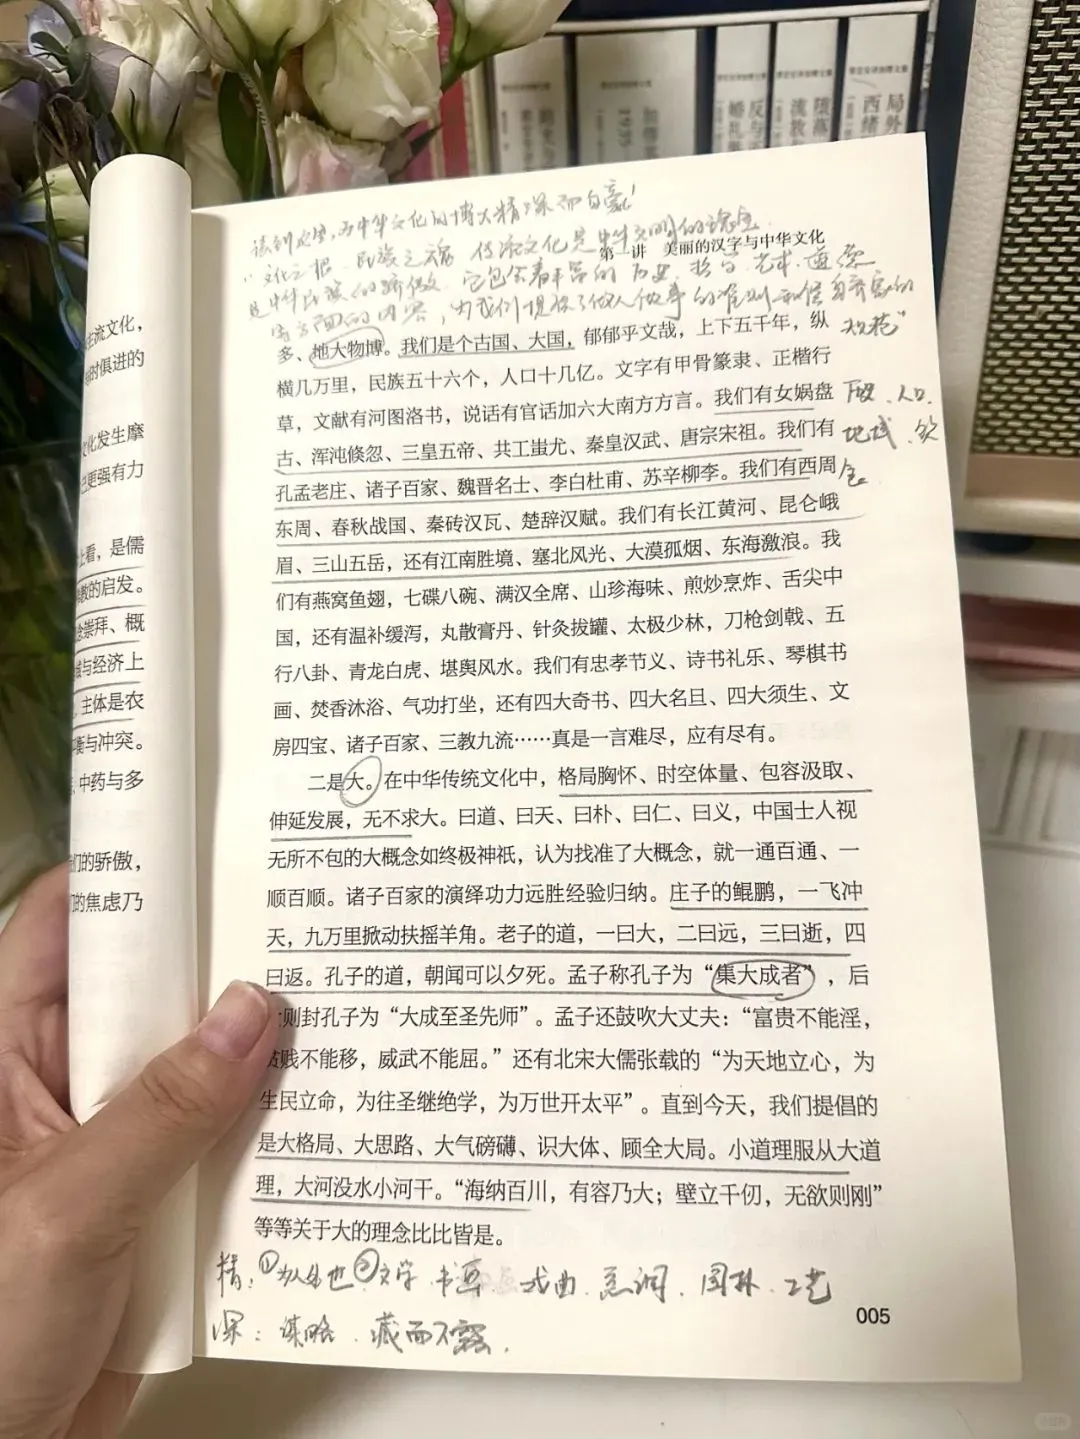 读到这里，为中华文化的博大精深而自豪！
"文化之根 民族之魂 传统文化是中华文明的瑰宝
第一讲 美丽的汉字与中华文化
是中华民族的骄傲，它包含着丰富的历史、哲学、艺术、道德
等方面的内容，为我们提供了做人做事的准则和
多、地大物博。我们是个古国、大国，郁郁乎文哉，上下五千年，纵
横几万里，民族五十六个，人口十几亿。文字有甲骨篆隶、正楷行
草，文献有河图洛书，说话有官话加六大南方方言。我们有女娲盘
古、浑沌倏忽、三皇五帝、共工蚩尤、秦皇汉武、唐宗宋祖。我们有
孔孟老庄、诸子百家、魏晋名士、李白杜甫、苏辛柳李。我们有西周
东周、春秋战国、秦砖汉瓦、楚辞汉赋。我们有长江黄河、昆仑峨
眉、三山五岳，还有江南胜境、塞北风光、大漠孤烟、东海激浪。我
们有燕窝鱼翅，七碟八碗、满汉全席、山珍海味、煎炒烹炸、舌尖中
国，还有温补缓泻，丸散膏丹、针灸拔罐、太极少林，刀枪剑戟、五
行八卦、青龙白虎、堪舆风水。我们有忠孝节义、诗书礼乐、琴棋书
画、焚香沐浴、气功打坐，还有四大奇书、四大名旦、四大须生、文
房四宝、诸子百家、三教九流……真是一言难尽，应有尽有。
二是大。在中华传统文化中，格局胸怀、时空体量、包容汲取、
伸延发展，无不求大。曰道、曰天、曰朴、曰仁、曰义，中国士人视
无所不包的大概念如终极神祇，认为找准了大概念，就一通百通、一
顺百顺。诸子百家的演绎功力远胜经验归纳。庄子的鲲鹏，一飞冲
天，九万里掀动扶摇羊角。老子的道，一曰大，二曰远，三曰逝，四
曰返。孔子的道，朝闻可以夕死。孟子称孔子为“集大成者”，后
则封孔子为“大成至圣先师”。孟子还鼓吹大丈夫：“富贵不能淫，
贫贱不能移，威武不能屈。”还有北宋大儒张载的“为天地立心，为
生民立命，为往圣继绝学，为万世开太平”。直到今天，我们提倡的
是大格局、大思路、大气磅礴、识大体、顾全大局。小道理服从大道
理，大河没水小河干。“海纳百川，有容乃大；壁立千仞，无欲则刚”
等等关于大的理念比比皆是。
人口
地域 饮
食
精：①为人处世②文学 书画 戏曲 园林 工艺
深：谋略 藏而不露
005
主流文化，
时俱进的
文化发生摩
更强有力
上看，是儒
教的启发。
崇拜、概
与经济上
主体是农
衡与冲突。
中药与多
们的骄傲，
的焦虑乃